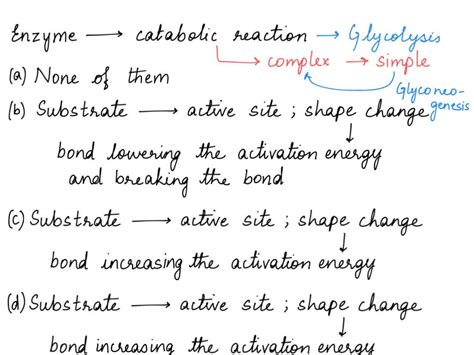 Enzyme → catabolic reaction → Glycolysis
→ complex → simple
(a) None of them
Glyconeo-
genesis
(b) Substrate → active site ; shape change
↓
bond lowering the activation energy
and breaking the bond
(c) Substrate → active site ; shape change
↓
bond increasing the activation energy
(d) Substrate → active site ; shape change
↓
bond increasing the activation energy